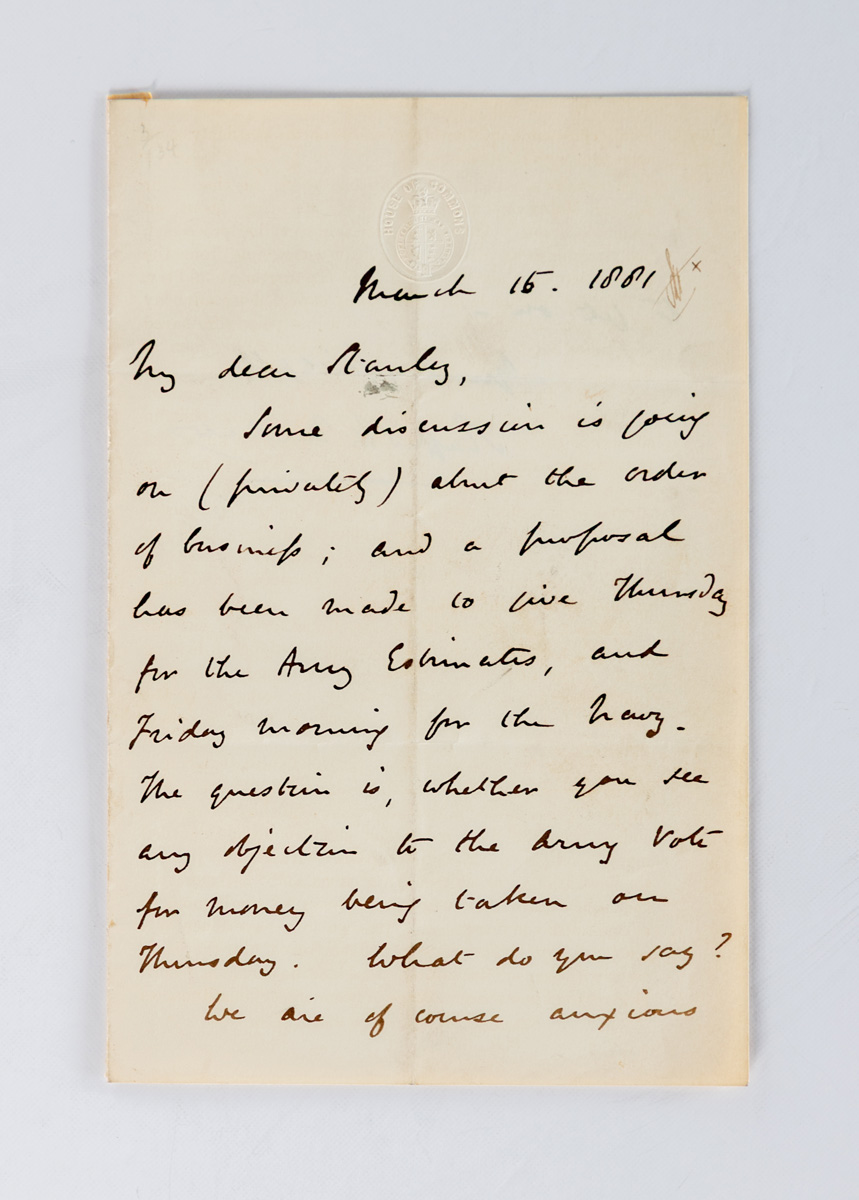 HOUSE OF COMMONS
March 15. 1881
My dear Stanley,
Some discussion is going
on (privately) about the order
of business; and a proposal
has been made to give Thursday
for the Army Estimates, and
Friday morning for the Navy.
The question is, whether you see
any objection to the Army Vote
for money being taken on
Thursday. What do you say?
We are of course anxious